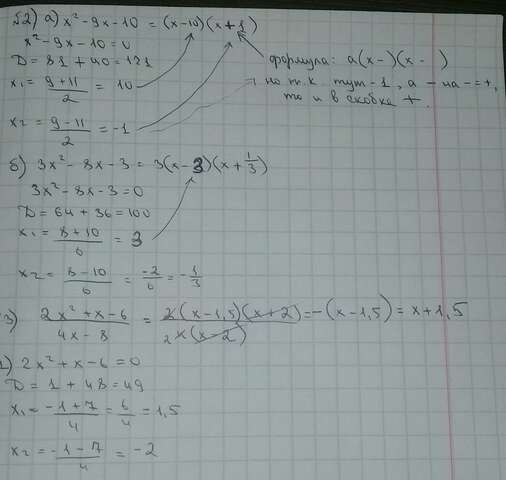 №2) а) x² - 9x - 10 = (x-10)(x+1)
x² - 9x - 10 = 0
D = 81 + 40 = 121
x₁ = (9+11)/2 = 10
формула: a(x- )(x- )
но т.к. тут -1, а - на - = +,
то и в скобке +.
x₂ = (9-11)/2 = -1
б) 3x² - 8x - 3 = 3(x-3)(x+1/3)
3x² - 8x - 3 = 0
D = 64 + 36 = 100
x₁ = (8+10)/6 = 3
x₂ = (8-10)/6 = -2/6 = -1/3
3) (2x² + x - 6)/(4x - 8) = 2(x-1,5)(x+2)/(2 4(x-2)) = -(x-1,5) = x+1,5
1) 2x² + x - 6 = 0
D = 1 + 48 = 49
x₁ = (-1+7)/4 = 6/4 = 1,5
x₂ = (-1-7)/4 = -2